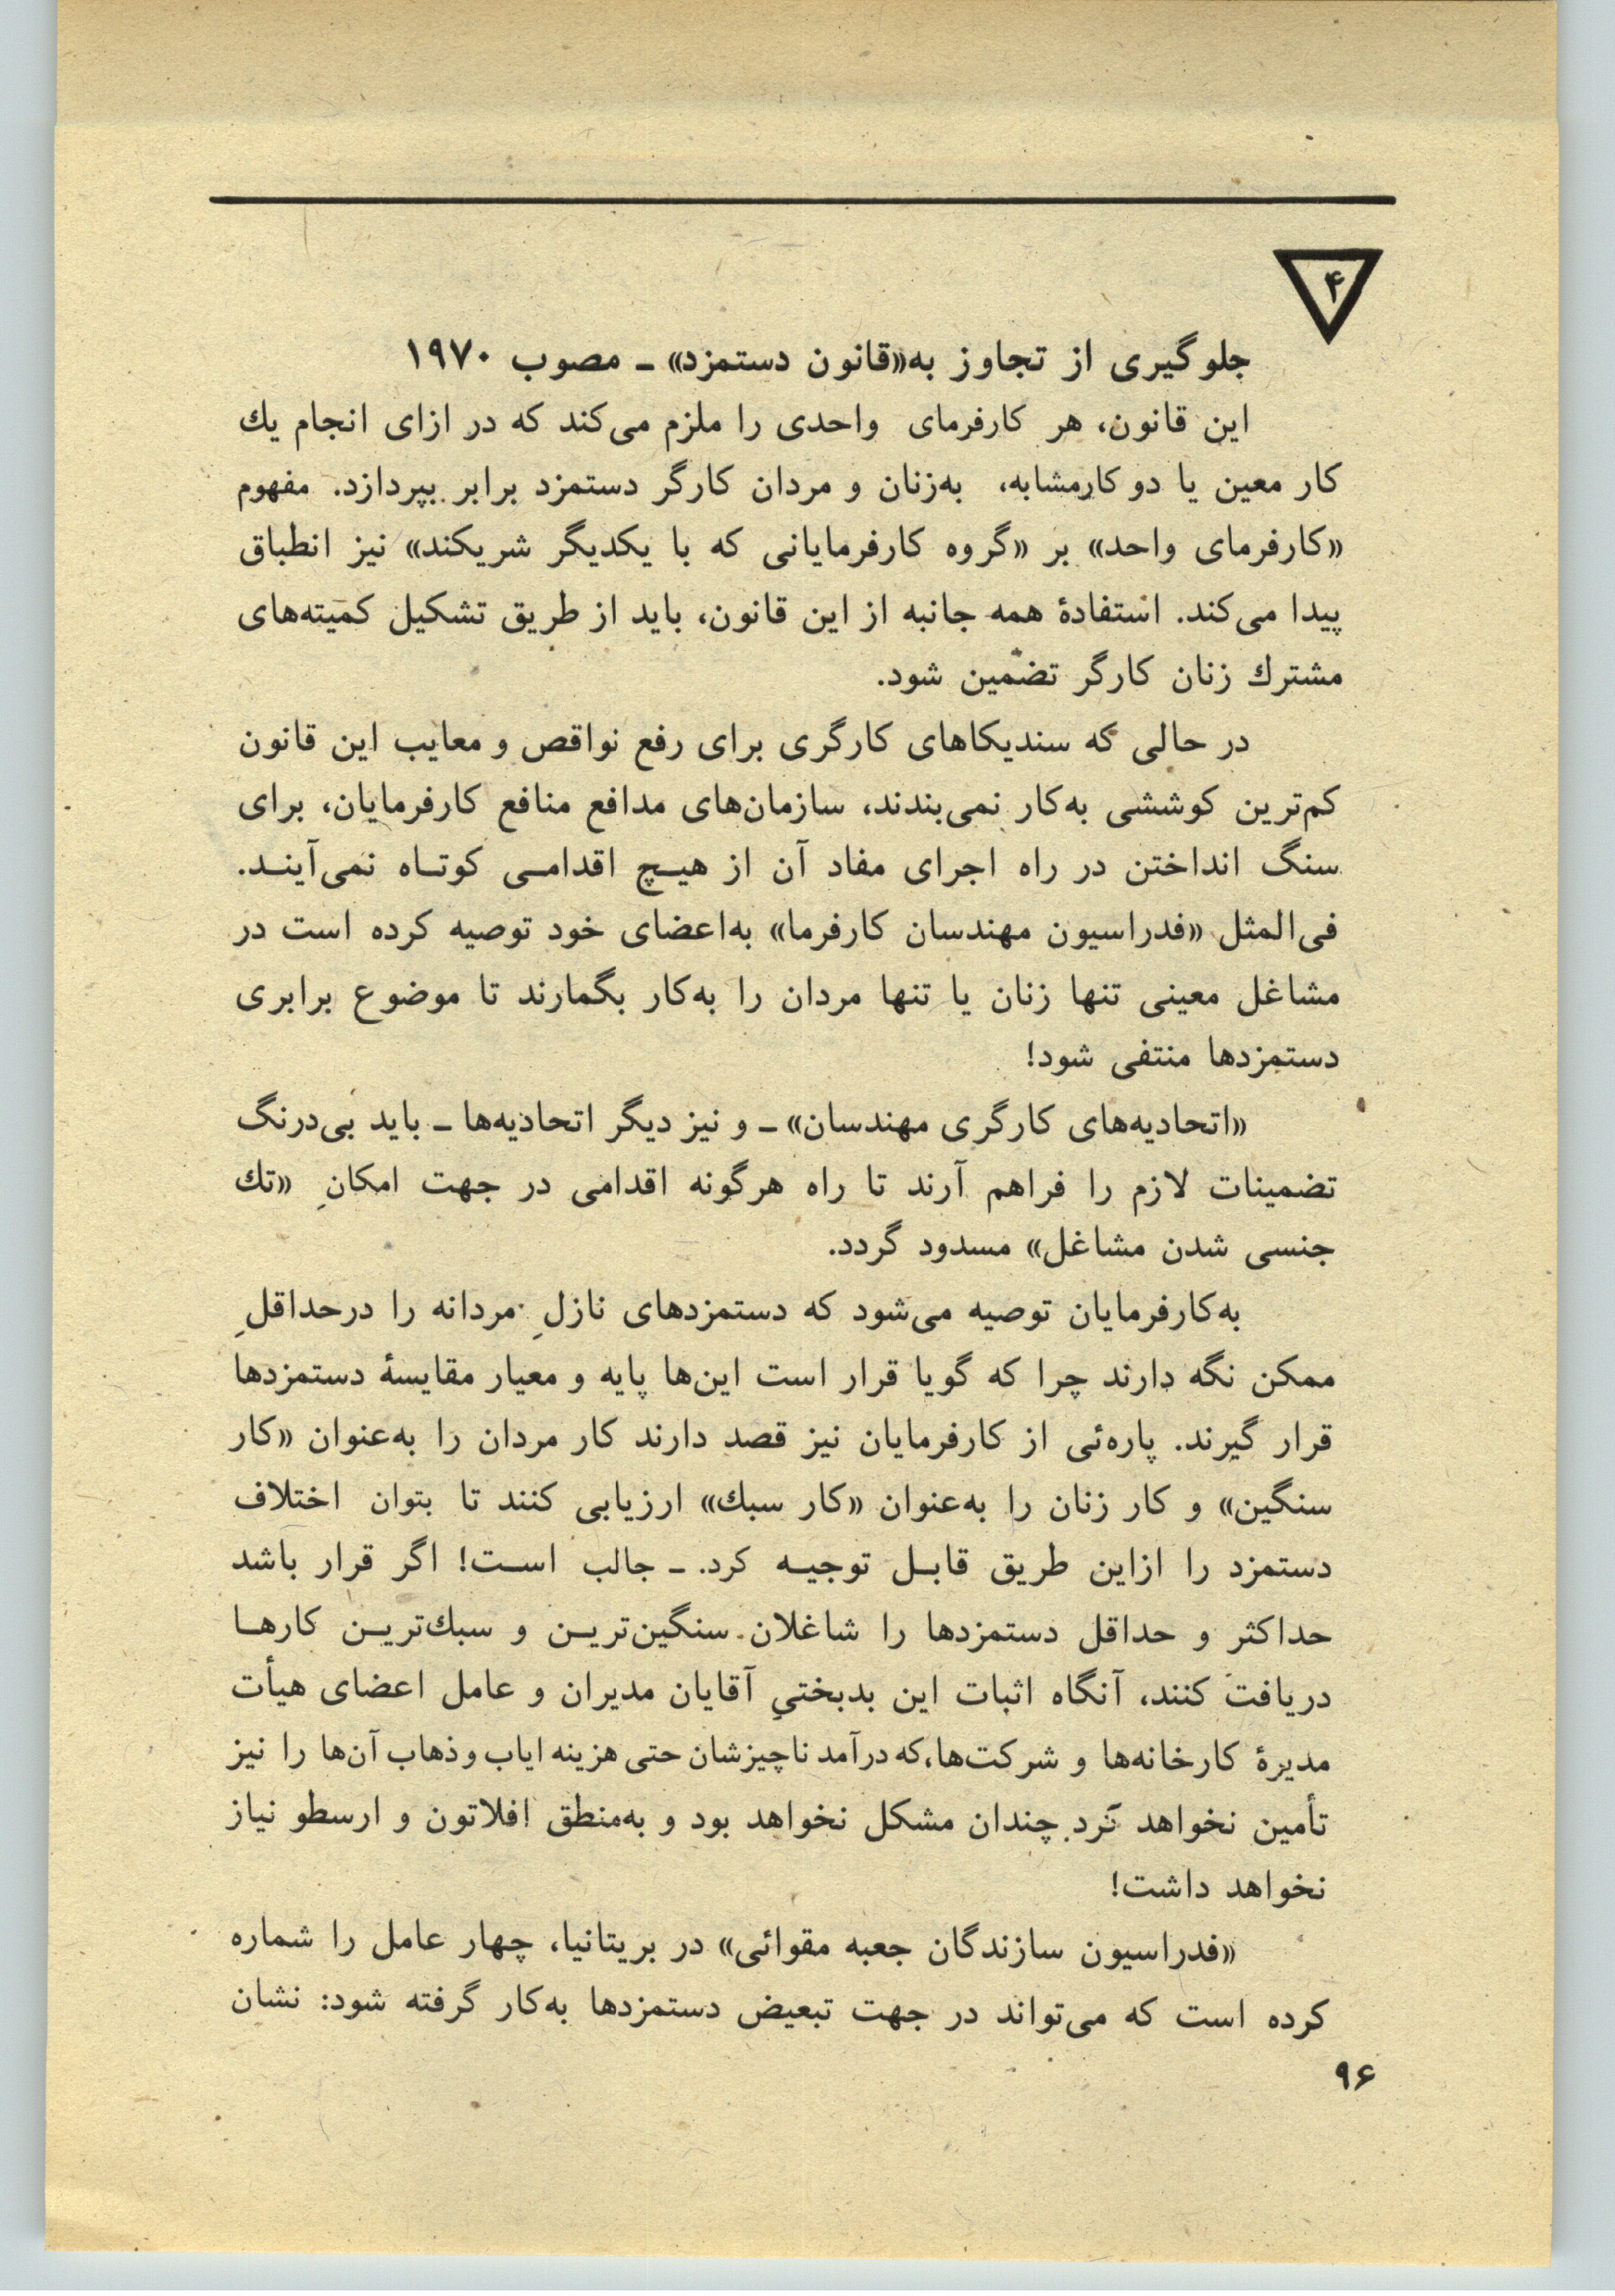 ۴
جلوگیری از تجاوز به«قانون دستمزد» ـ مصوب ۱۹۷۰
این قانون، هر کارفرمای واحدی را ملزم می‌کند که در ازای انجام یك
کار معین یا دو کارمشابه، به‌زنان و مردان کارگر دستمزد برابر بپردازد. مفهوم
«کارفرمای واحد» بر «گروه کارفرمایانی که با یکدیگر شریکند» نیز انطباق
پیدا می‌کند. استفادهٔ همه جانبه از این قانون، باید از طریق تشکیل کمیته‌های
مشترك زنان کارگر تضمین شود.
در حالی که سندیکاهای کارگری برای رفع نواقص و معایب این قانون
کم‌ترین کوششی به‌کار نمی‌بندند، سازمان‌های مدافع منافع کارفرمایان، برای
سنگ انداختن در راه اجرای مفاد آن از هیـچ اقدامـی کوتـاه نمی‌آینـد.
فی‌المثل «فدراسیون مهندسان کارفرما» به‌اعضای خود توصیه کرده است در
مشاغل معینی تنها زنان یا تنها مردان را به‌کار بگمارند تا موضوع برابری
دستمزدها منتفی شود!
«اتحادیه‌های کارگری مهندسان» ـ و نیز دیگر اتحادیه‌ها ـ باید بی‌درنگ
تضمینات لازم را فراهم آرند تا راه هرگونه اقدامی در جهت امکانِ «تك
جنسی شدن مشاغل» مسدود گردد.
به‌کارفرمایان توصیه می‌شود که دستمزدهای نازلِ مردانه را درحداقلِ
ممکن نگه دارند چرا که گویا قرار است این‌ها پایه و معیار مقایسهٔ دستمزدها
قرار گیرند. پاره‌ئی از کارفرمایان نیز قصد دارند کار مردان را به‌عنوان «کار
سنگین» و کار زنان را به‌عنوان «کار سبك» ارزیابی کنند تا بتوان اختلاف
دستمزد را ازاین طریق قابـل توجیـه کرد. ـ جالب اسـت! اگر قرار باشد
حداکثر و حداقل دستمزدها را شاغلان سنگین‌تریـن و سبك‌تریـن کارهـا
دریافت کنند، آنگاه اثبات این بدبختیِ آقایان مدیران و عامل اعضای هیأت
مدیرهٔ کارخانه‌ها و شرکت‌ها،که درآمد ناچیزشان حتی هزینه ایاب و ذهاب آن‌ها را نیز
تأمین نخواهد کرد چندان مشکل نخواهد بود و به‌منطق افلاتون و ارسطو نیاز
نخواهد داشت!
«فدراسیون سازندگان جعبه مقوائی» در بریتانیا، چهار عامل را شماره
کرده است که می‌تواند در جهت تبعیض دستمزدها به‌کار گرفته شود: نشان
۹۶